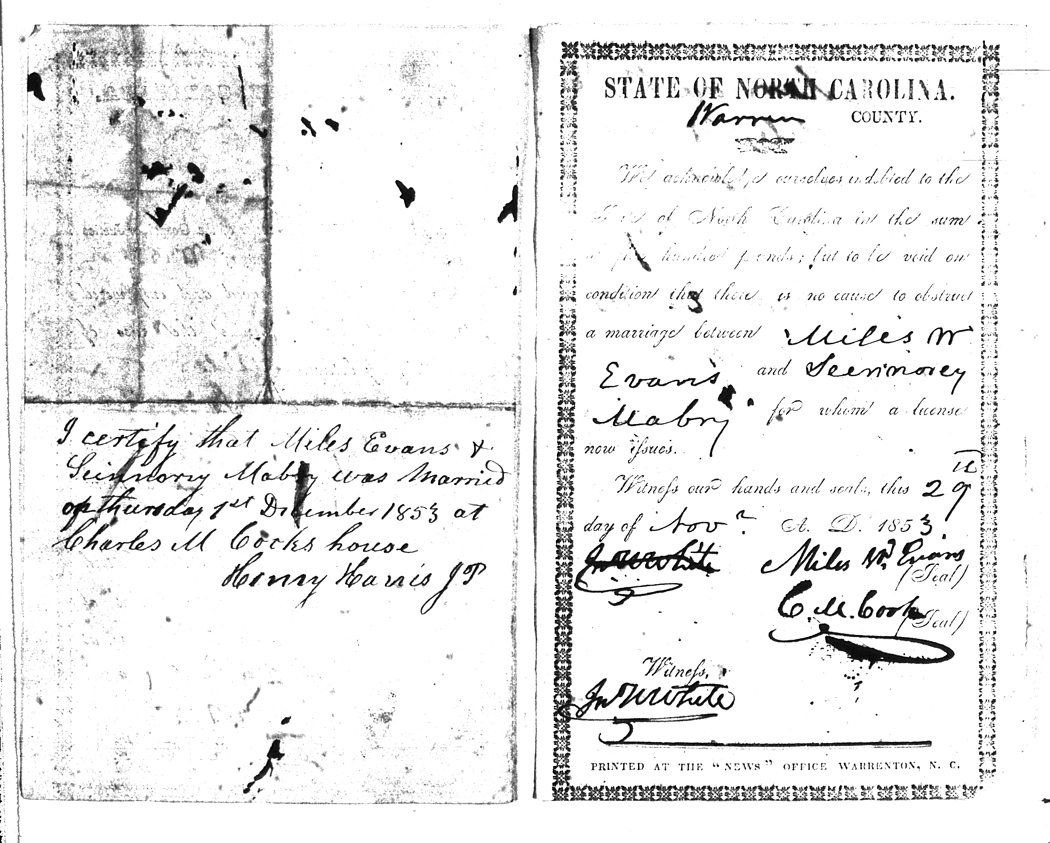 I certify that Miles Evans &
Seinnorry Mabry was Married
on thursday 1st December 1853 at
Charles M Cooks house
Henry Harris JP
STATE OF NORTH CAROLINA.
Warren COUNTY.
We acknowledge ourselves indebted to the
State of North Carolina in the sum
of five hundred pounds; but to be void on
condition that there is no cause to obstruct
a marriage between Miles W
Evans and Seennorey
Mabry for whom a license
now issues.
Witness our hands and seals, this 29th
day of Novr A. D. 1853
Jn W White Miles W. Evans
(Seal)
C. M. Cook (Seal)
Witness,
Jn W White
PRINTED AT THE "NEWS" OFFICE WARRENTON, N. C.